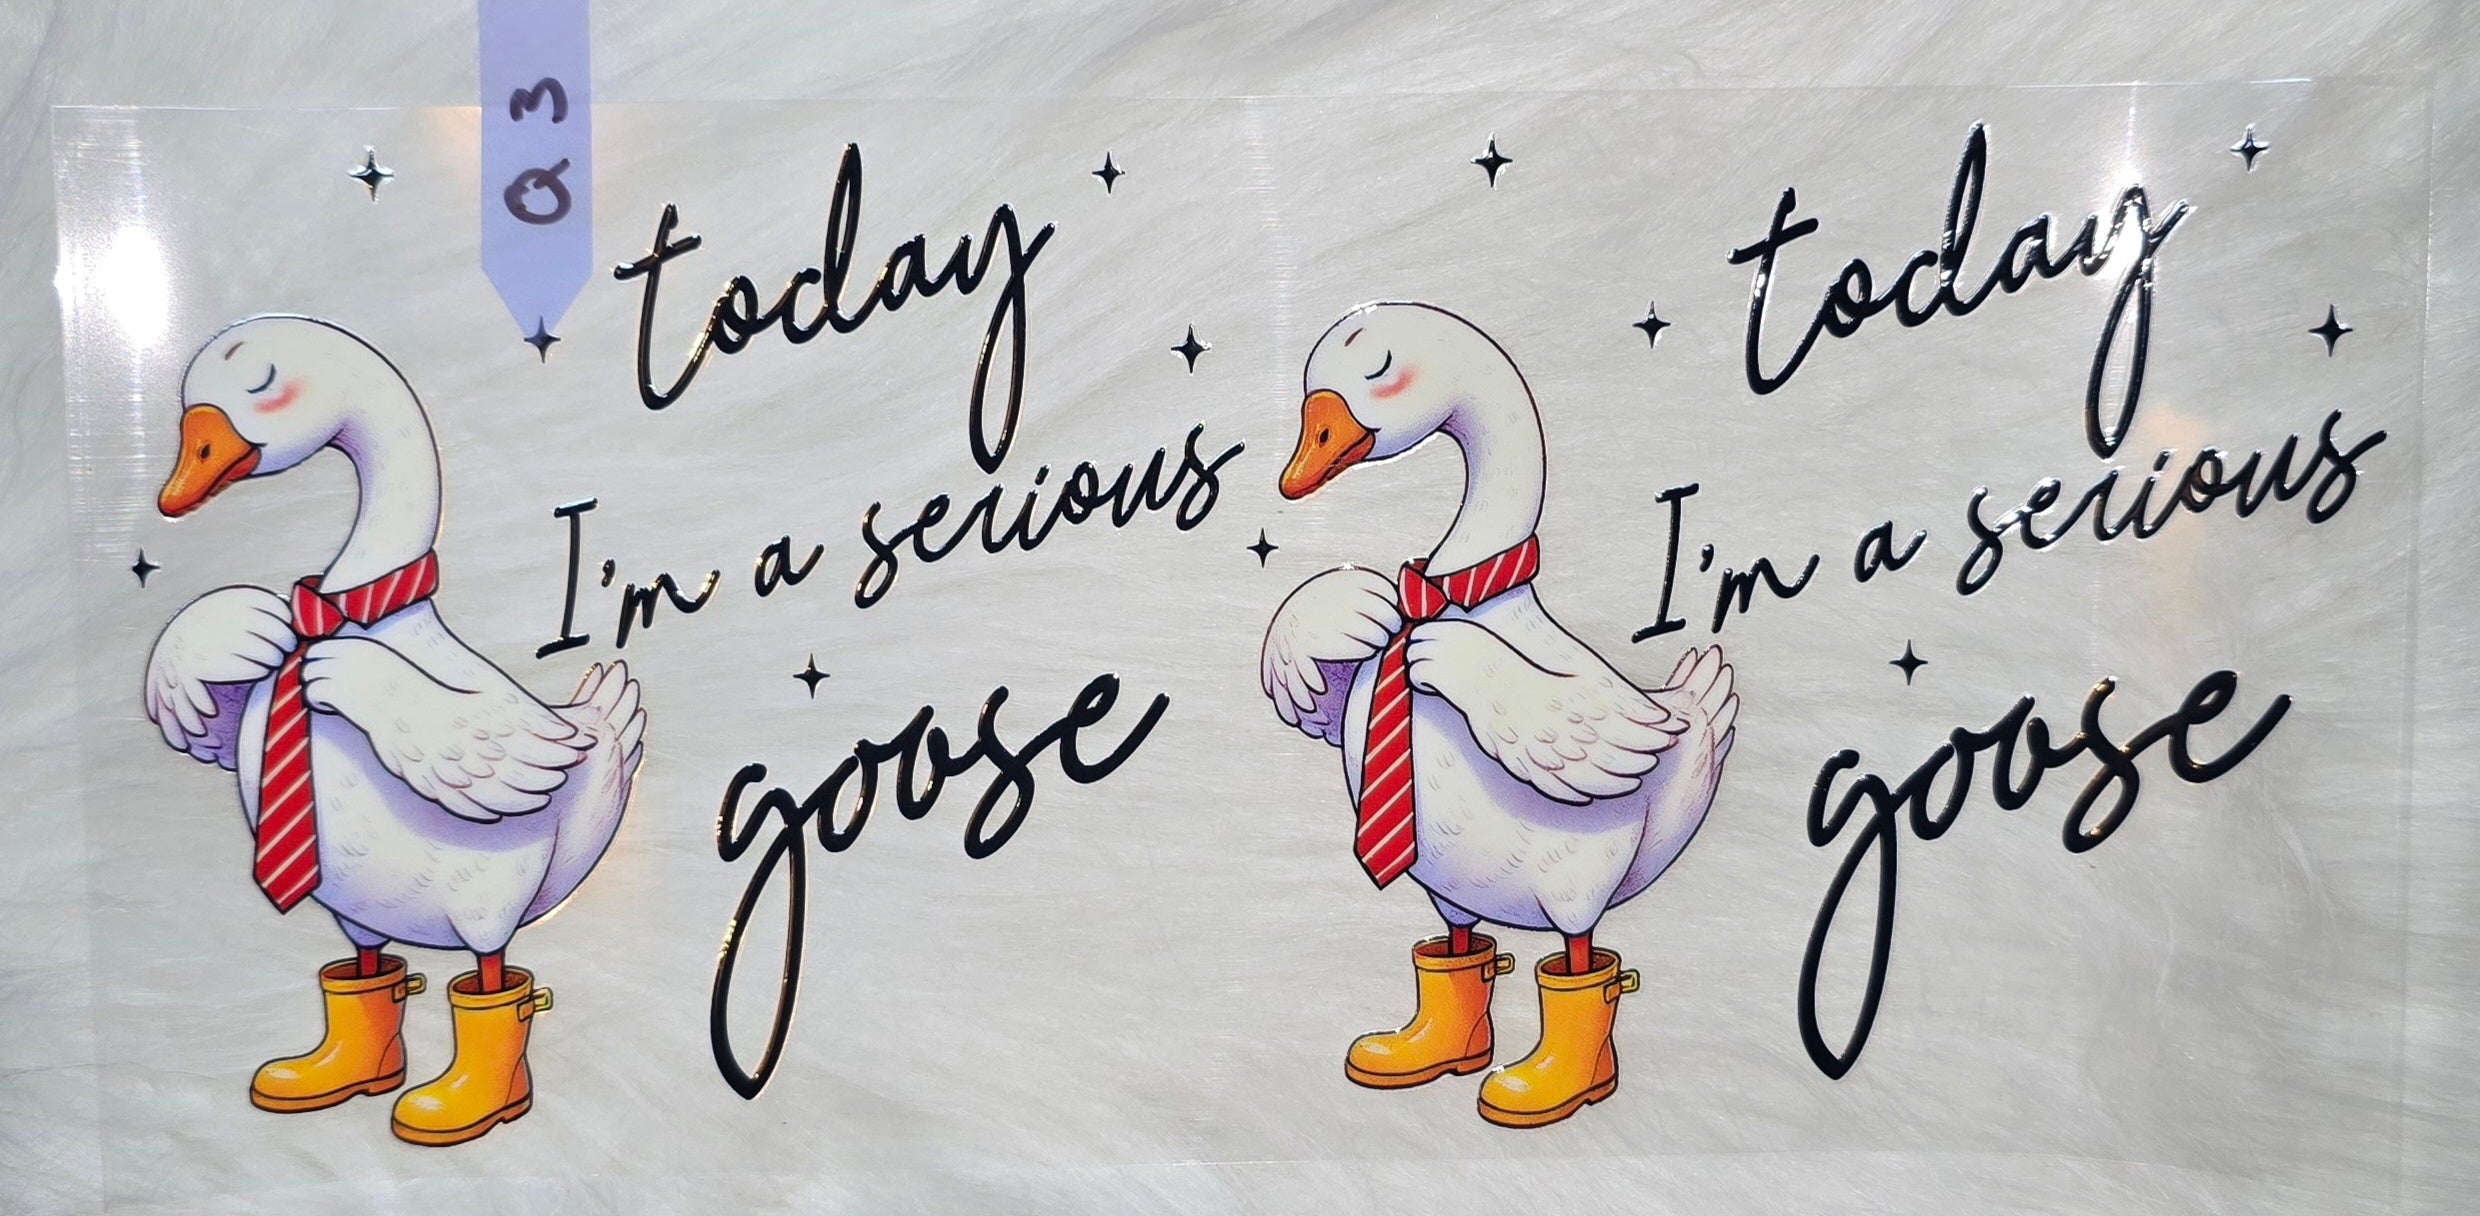 Q 3
today
I'm a serious
goose
today
I'm a serious
goose